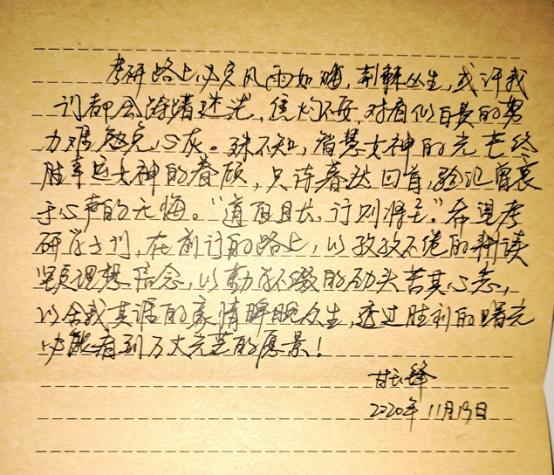 考研路上必定风雨如晦，荆棘丛生，或许我
们都会踌躇迷茫，焦灼不安，对看似白费的努
力难免心灰。殊不知，智慧女神的光芒终
胜幸运女神的眷顾，只许蓦然回首，验证曾衷
于心声的无悔。“道阻且长，行则将至。”希望考
研学子们，在前行的路上，以孜孜不倦的耕读
坚定理想信念，以勤学不辍的劲头苦其心志，
以舍我其谁的豪情睥睨众生，透过胜利的曙光
必能看到万丈光芒的愿景！
2020年11月19日